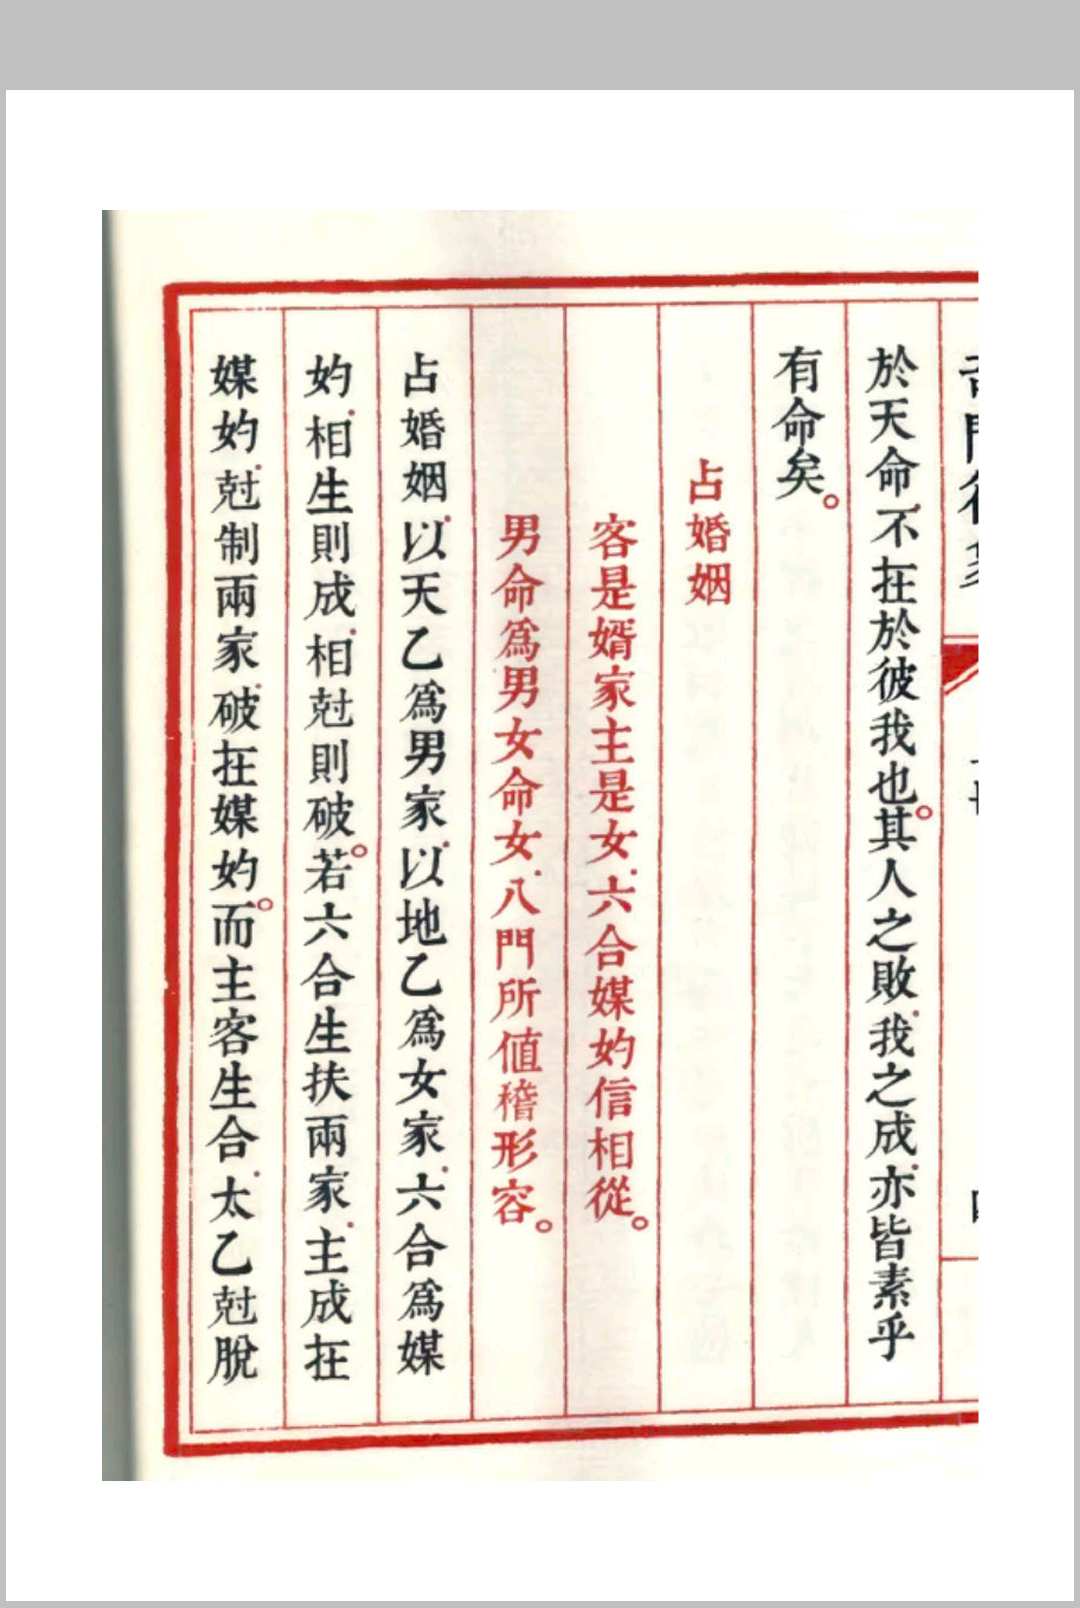 於天命不在於彼我也。其人之敗我之成亦皆素乎
有命矣。
占婚姻
客是婿家主是女六合媒妁信相從。
男命為男女命女八門所值稽形容。
占婚姻以天乙為男家以地乙為女家六合為媒
妁相生則成相尅則破。若六合生扶兩家主成在
媒妁尅制兩家破在媒妁。而主客生合太乙尅脫